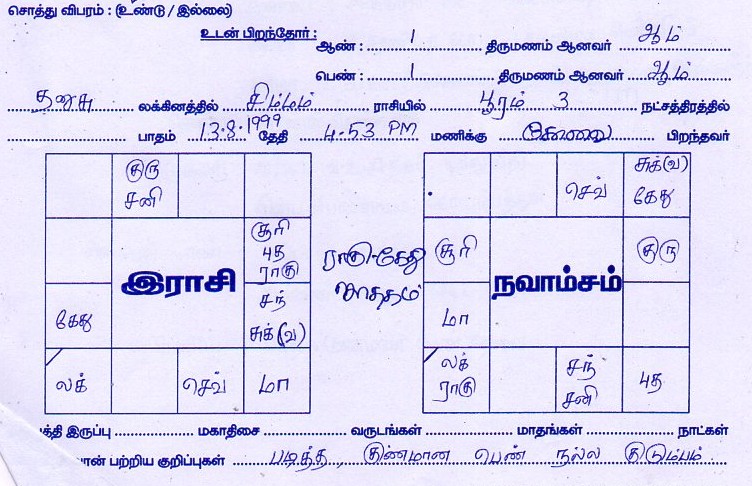 சொத்து விபரம் : (உண்டு / இல்லை)
உடன் பிறந்தோர் : ஆண் : 1 திருமணம் ஆனவர் ஆம்
பெண் : 1 திருமணம் ஆனவர் ஆம்
தனுசு லக்கினத்தில் சிம்மம் ராசியில் பூரம் 3 நட்சத்திரத்தில்
பாதம் 13-8-1999 தேதி 4-53 PM மணிக்கு கோவை பிறந்தவர்
குரு சனி
சூரி புத ராகு
இராசி
கேது
சந் சுக்(வ)
லக்
செவ்
மா
ராகு-கேது ஜாதகம்
செவ்
சுக்(வ) கேது
சூரி
குரு
நவாம்சம்
மா
லக் ராகு
சந் சனி
புத
த்தி இருப்பு மகாதிசை வருடங்கள் மாதங்கள் நாட்கள்
பற்றிய குறிப்புகள் படித்த, குணமான பெண் நல்ல குடும்பம்